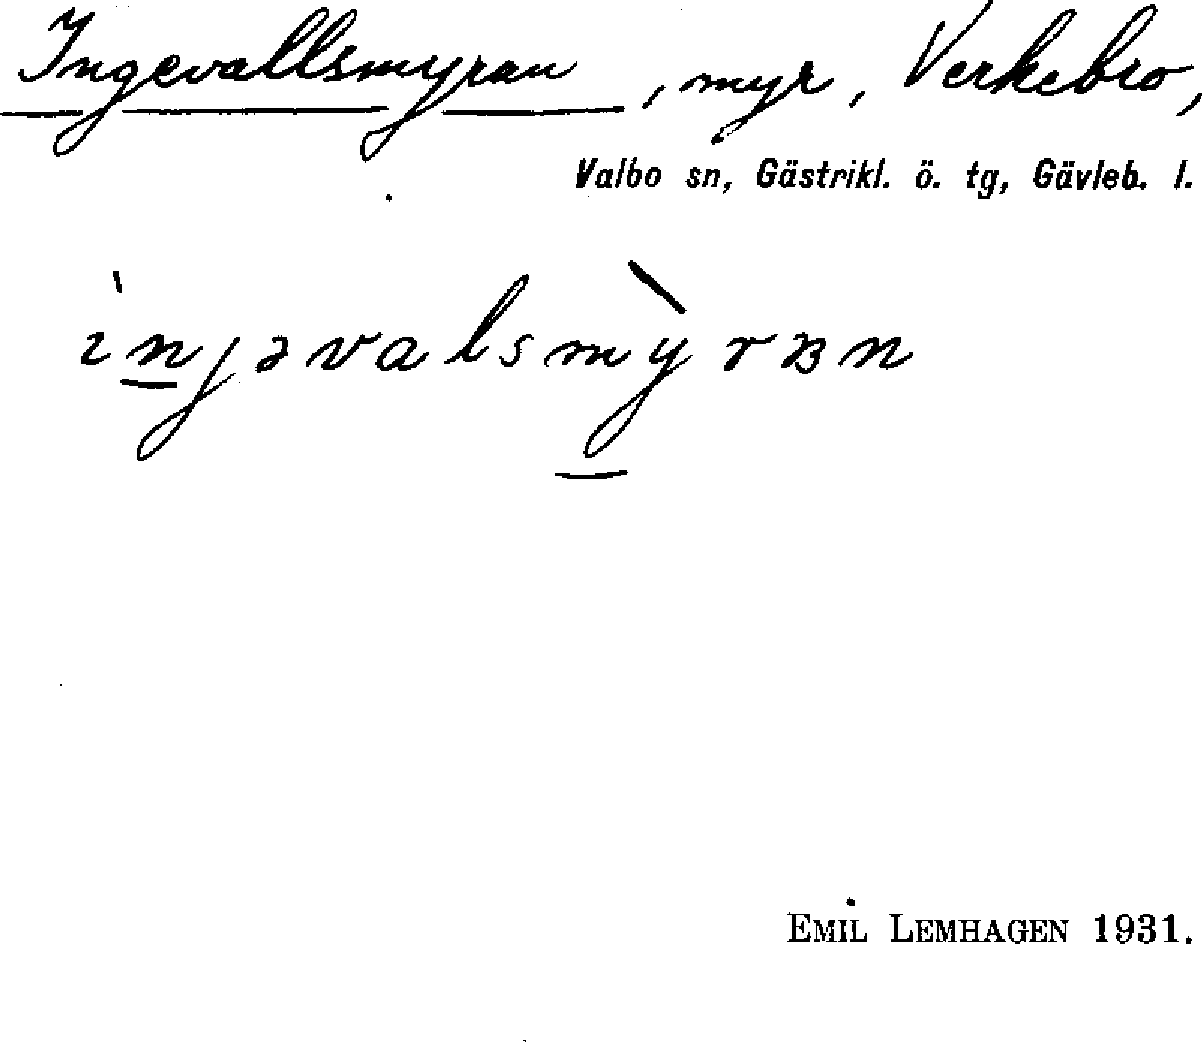 Ingevallsmyran, myr, Verkebro,
Valbo sn, Gästrikl. ö. tg, Gävleb. l.
ìn̲jəvalsmỳ̲rɞn
EMIL LEMHAGEN 1931.